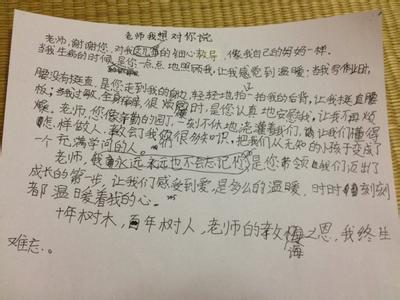 老师我想对你说
老师,谢谢您,对我这几年的细心教导,像我自己的妈妈一样。
当我生病的时候,是你一点点地照顾我,让我感觉到温暖;当我写作业时,
腰没有挺直,是您走到我的身边,轻轻地拍一拍我的后背,让我挺直腰
板;当我过敏,全身很烦时,是您认真地安慰我,让我不再烦
燥。老师,您像辛勤的园丁,一刻不休地浇灌着我们,让我们懂得
怎样做人,教会了我们很多知识,把我们从无知的小孩子变成了
一个充满学问的人。
老师,我永远永远也不会忘记你,是您带领我们迈出了
成长的第一步,让我们感受到爱,是多么的温暖,时时刻刻
都温暖着我的心。
十年树木,百年树人,老师的教诲之恩,我终生
难忘。